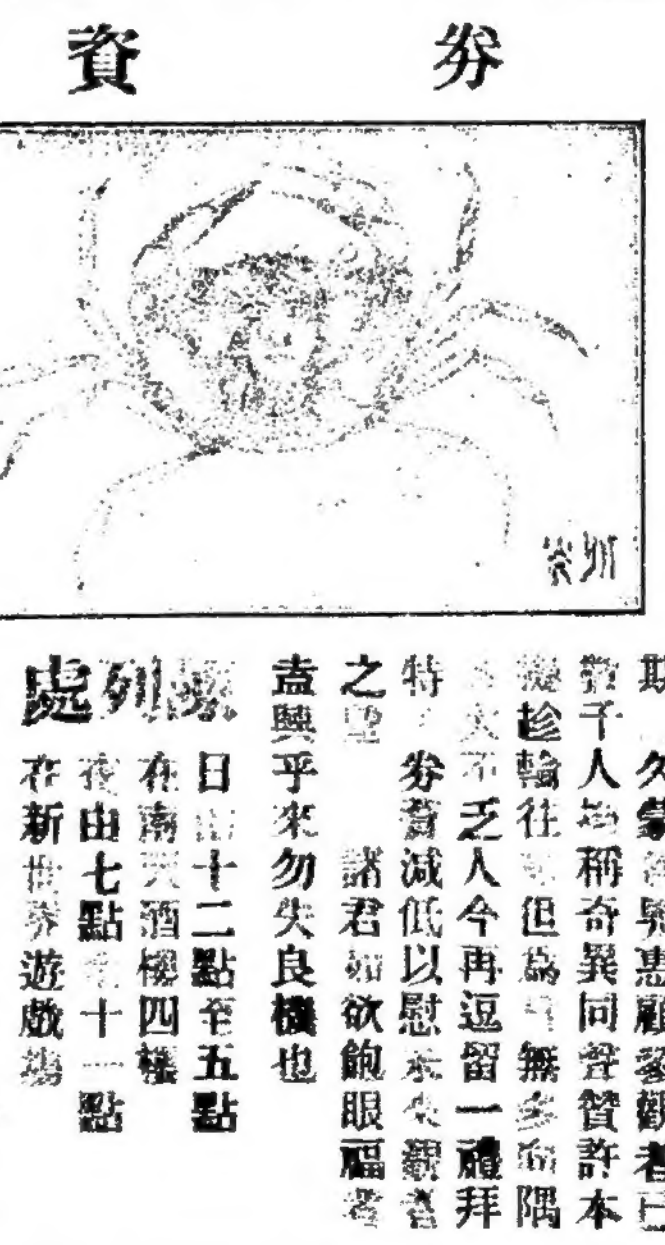 劵資
久蒙各界惠顧參觀者已
數千人均稱奇異同聲贊許本
擬趁輪往但為無多向隅
不乏人今再逗留一禮拜
特劵資減低以慰未觀者
之望 諸君如欲飽眼福者
盍興乎來勿失良機也
陳列處
日由十二點至五點
在南天酒樓四樓
夜由七點至十一點
在新世界遊戲場